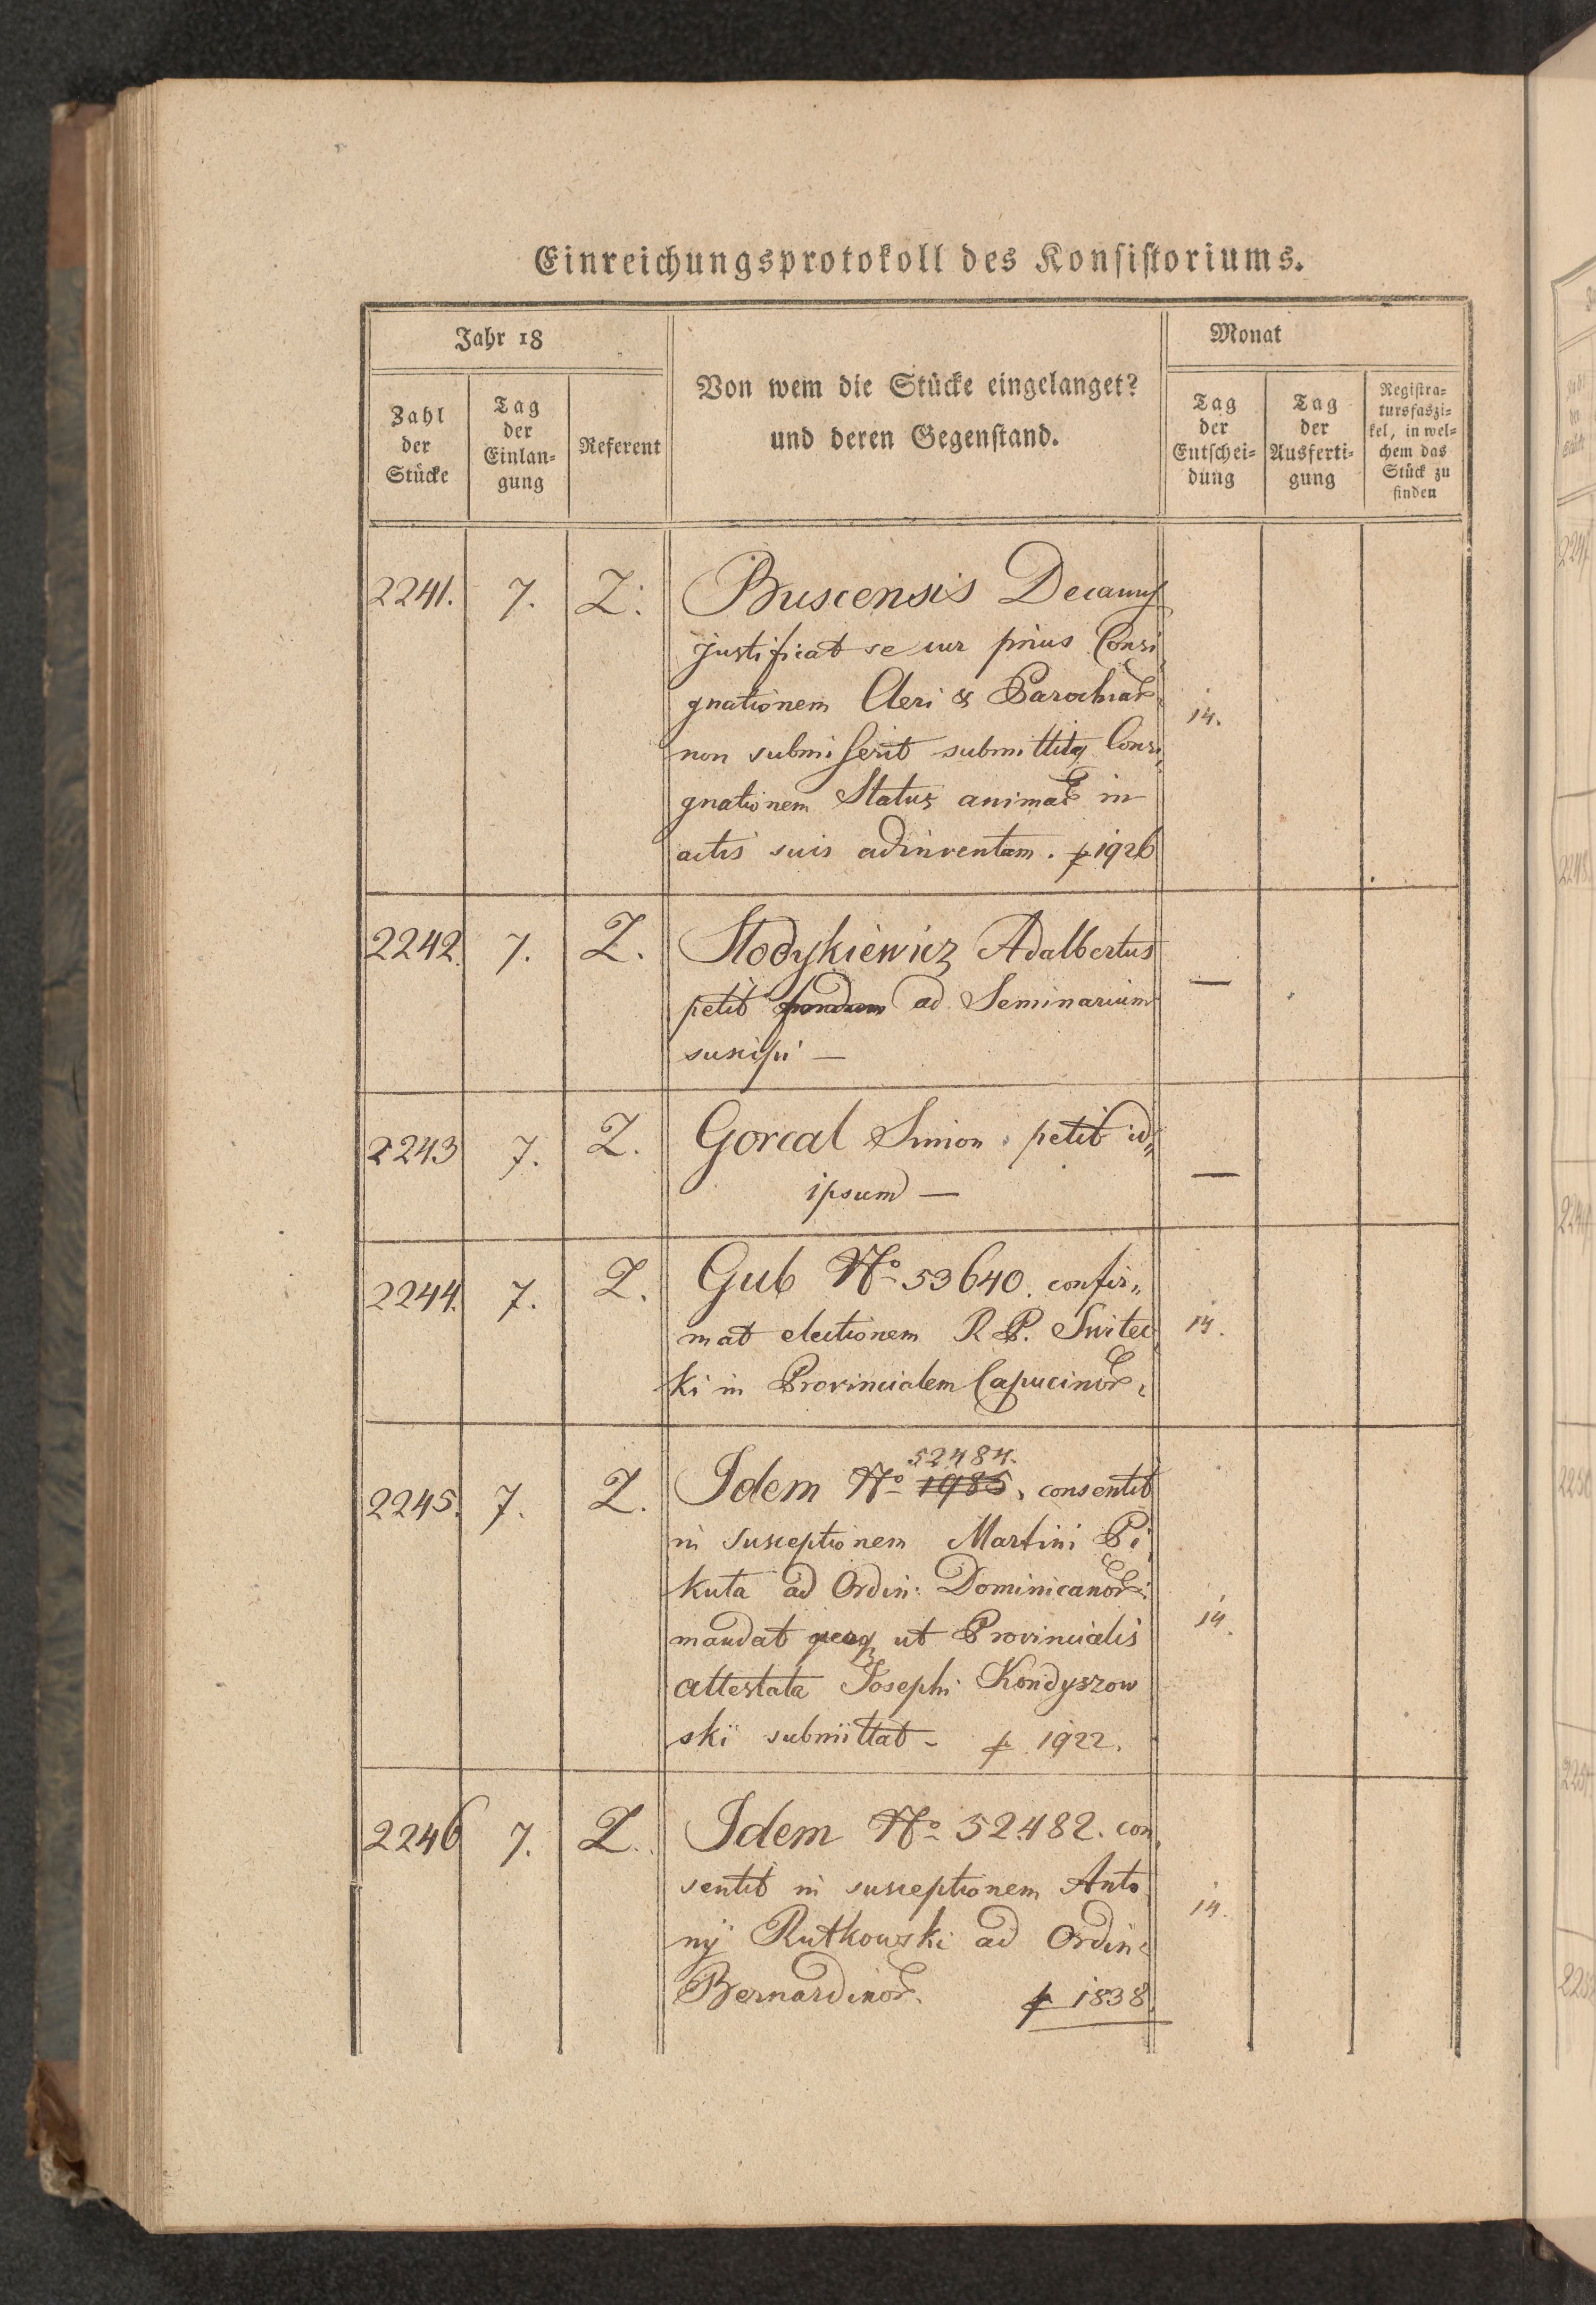 Einreichungsprotokoll des Konsistoriums.
Jahr 18
Monat
Zahl der Stücke
Tag der Einlan-gung
Referent
Von wem die Stücke eingelanget?
und deren Gegenstand.
Tag der Entschei-dung
Tag der Ausferti-gung
Registra-tursfaszi-kel, in wel-chem das Stück zu finden
2241. 7. Z. Buscensis Decanus
justificat se cur prius Consi
gnationem Cleri & Parochiar.
14.
non submiserit submittitq Consi
gnationem Status animar in
actis suis adinventam. f 1926
2242. 7. Z. Stodykiewicz Adalbertus
petit ad Seminarium —
suscipi —
2243 7. Z. Gorcal Simon petit id„
ipsum — —
2244. 7. Z. Gub No 53640. confir„
mat electionem R P. Switec 14.
ki in Provincialem Capucinor.
52484.
2245. 7. Z. Idem No 1985, consentit
in susceptionem Martini Pi
kuta ad Ordin: Dominicanor:
mandat ut Provincialis 14.
attestata Josephi Kondyszow
ski submittat – f 1922.
2246 7. Z. Idem No 52482. con
sentit in susceptionem Anto
nÿ Rutkowski ad Ordin: 14.
Bernardinor. f 1838